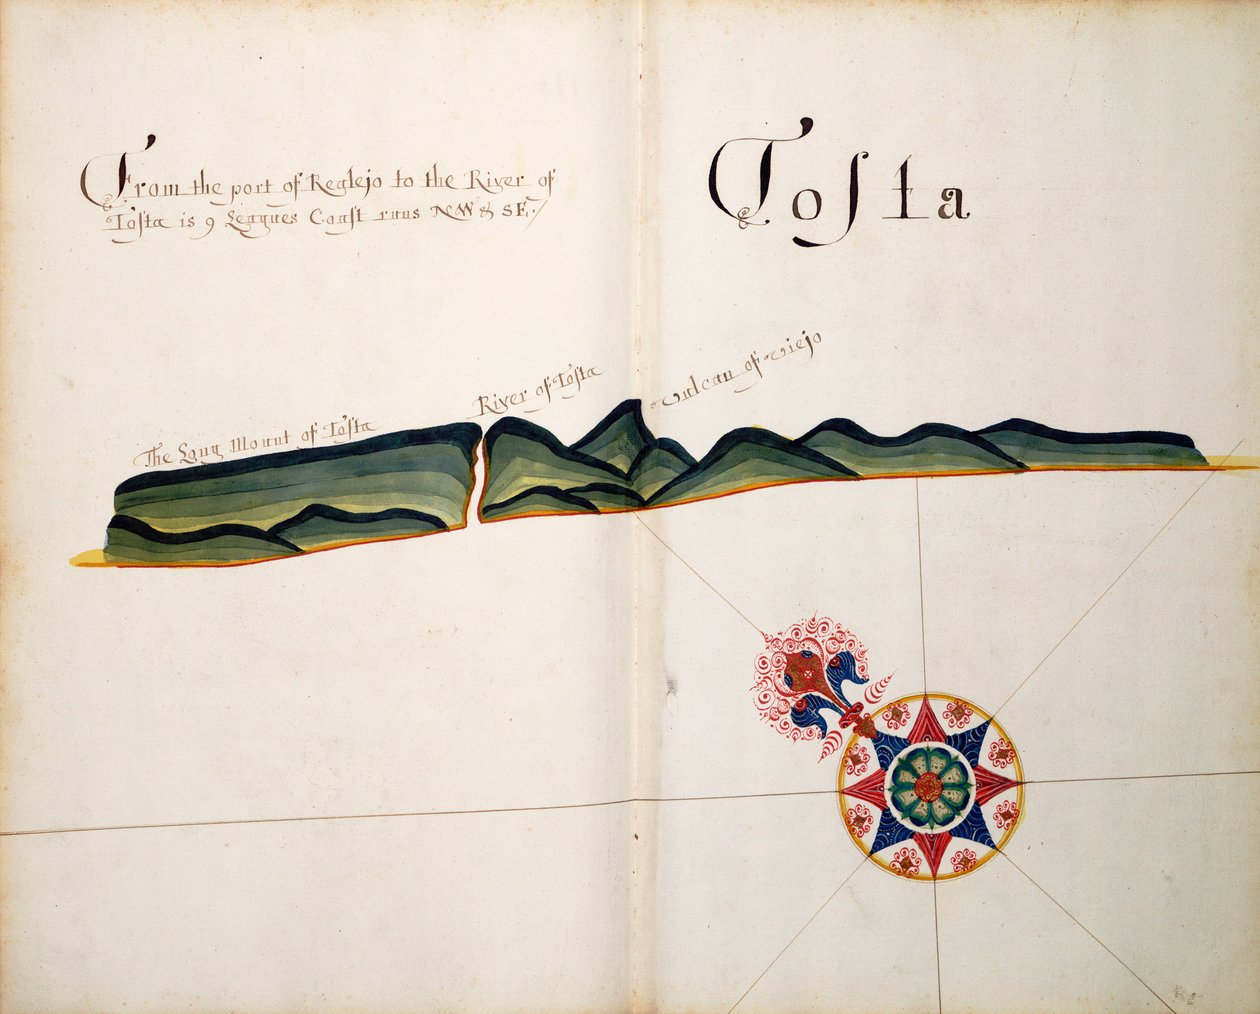 From the port of Realejo to the River of
Tosta is 9 Leagues Coast runs NW & SE:
Tosta
The Long Mount of Tosta
River of Tosta
Vulcan of Viejo